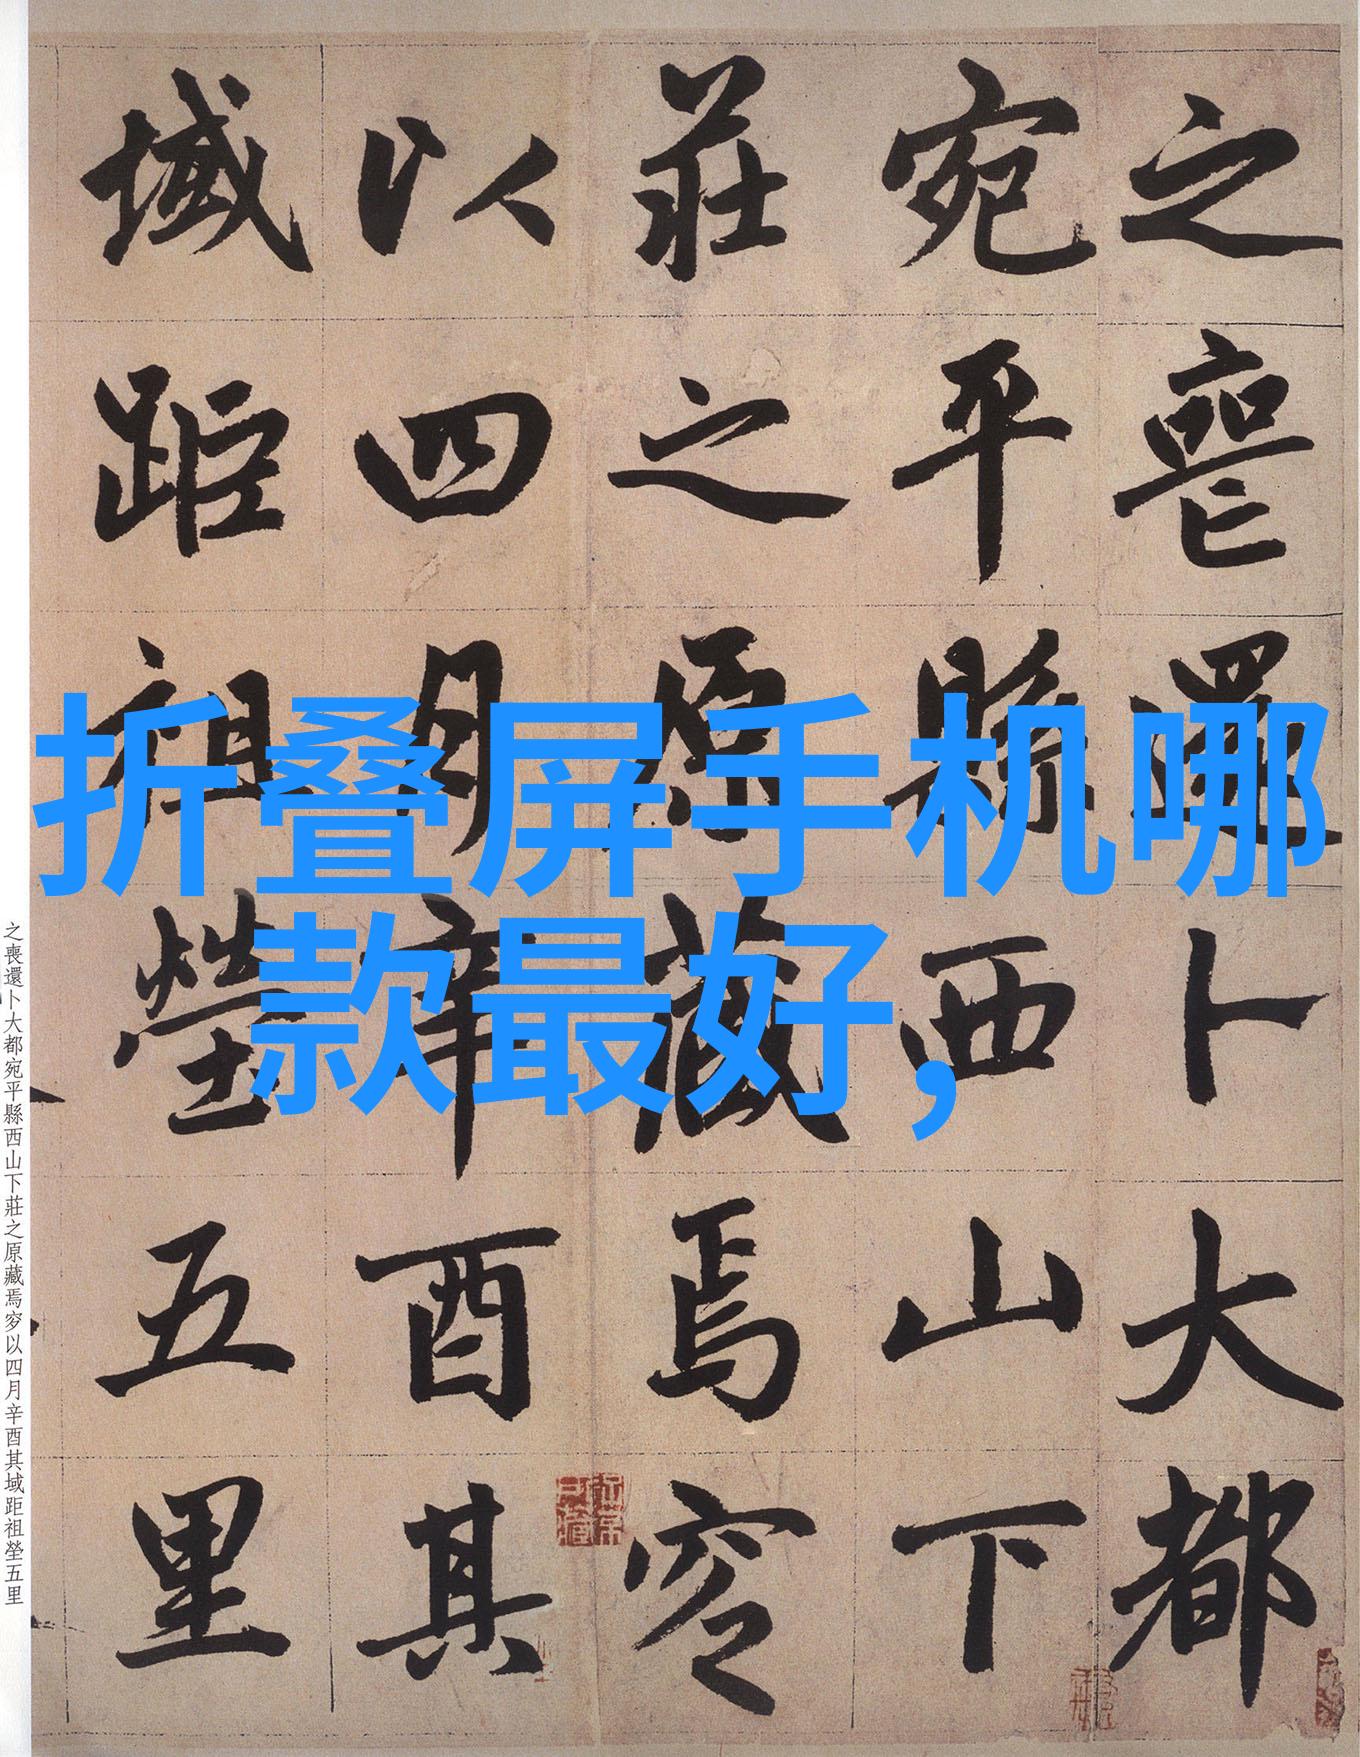 之喪還卜大都
宛平縣西山下
莊之原藏焉穸
以四月辛酉其
域距祖塋五里
折叠屏手机哪
款最好,
之喪還卜大都宛平縣西山下莊之原藏焉穸以四月辛酉其域距祖塋五里